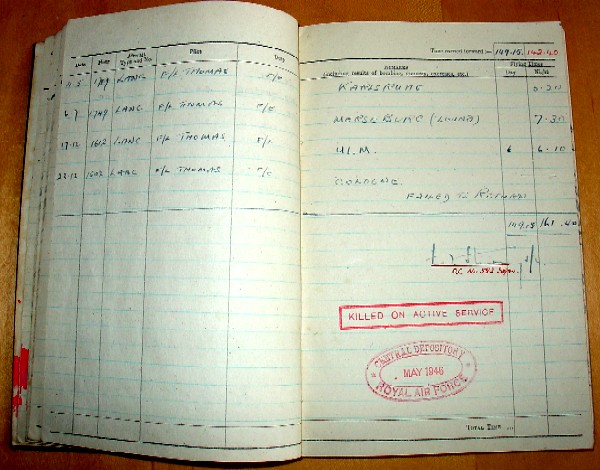 Date Hour Aircraft Type and No. Pilot Duty
1709 LANC F/L THOMAS F/E
1749 LANC F/L THOMAS F/E
17-12 1612 LANC F/L THOMAS F/E
23.12 1503 LANC F/L THOMAS F/E
Time carried forward :— 149.15 142.40
REMARKS
(including results of bombing, gunnery, exercises, etc.)
Flying Times
Day Night
KARLSRUHE
MERSEBURG (LEUNA) 7.30
ULM 6.10
COLOGNE
FAILED TO RETURN
149.15 161.40
KILLED ON ACTIVE SERVICE
CENTRAL DEPOSITORY
MAY 1946
ROYAL AIR FORCE
TOTAL TIME ...